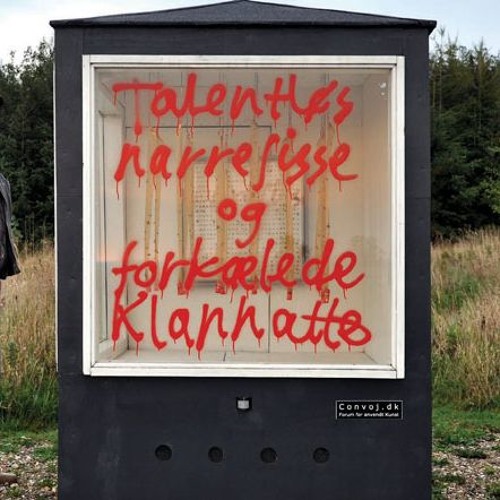 Talentløs
narrefisse
og
forkælede
Klaphatte
Convoj.dk
Forum for anvendt Kunst